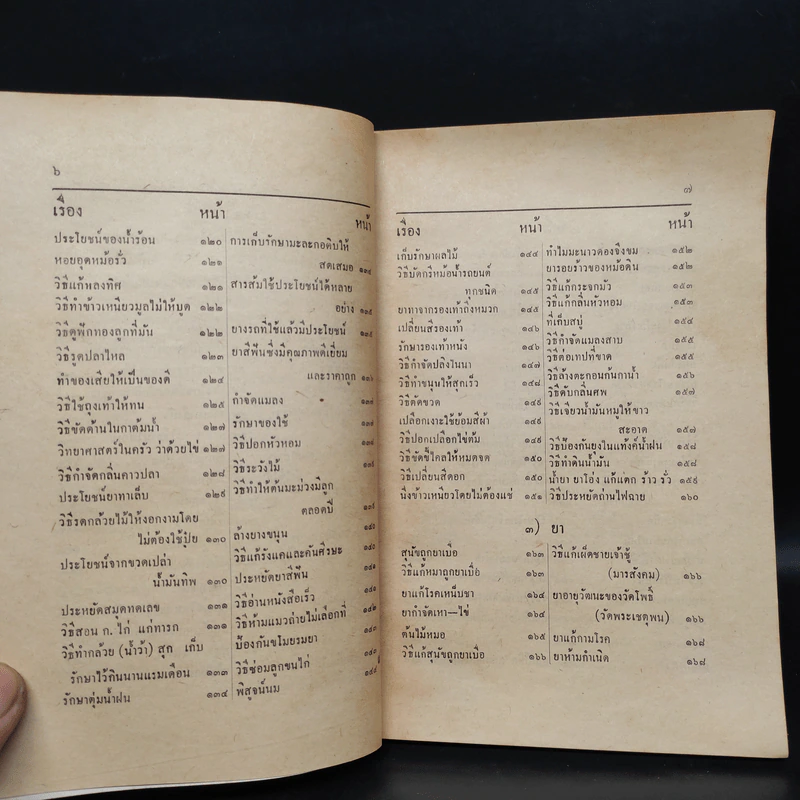 ๖
เรื่อง หน้า
ประโยชน์ของน้ำร้อน ๑๒๐
หอยอุดหม้อรั่ว ๑๒๑
วิธีแก้หลงทิศ ๑๒๑
วิธีทำข้าวเหนียวมูลไม่ให้บูด ๑๒๒
วิธีดูฟักทองลูกที่มัน ๑๒๒
วิธีรูดปลาไหล ๑๒๓
ทำของเสียให้เป็นของดี ๑๒๔
วิธีใช้ถุงเท้าให้ทน ๑๒๕
วิธีขัดด้านในกาต้มน้ำ ๑๒๗
วิทยาศาสตร์ในครัว ว่าด้วยไข่ ๑๒๗
วิธีกำจัดกลิ่นคาวปลา ๑๒๘
ประโยชน์ยาทาเล็บ ๑๒๙
วิธีรดกล้วยไม้ให้งอกงามโดย
ไม่ต้องใช้ปุ๋ย ๑๓๐
ประโยชน์จากขวดเปล่า
น้ำมันทิพ ๑๓๐
ประหยัดสมุดทดเลข ๑๓๑
วิธีสอน ก. ไก่ แก่ทารก ๑๓๑
วิธีทำกล้วย (น้ำว้า) สุก เก็บ
รักษาไว้กินนานแรมเดือน ๑๓๓
รักษาตุ่มน้ำฝน ๑๓๔
หน้า
การเก็บรักษามะละกอดิบให้
สดเสมอ ๑๓๔
สารส้มใช้ประโยชน์ได้หลาย
อย่าง ๑๓๕
ยางรถที่ใช้แล้วมีประโยชน์ ๑๓๕
ยาสีฟันซึ่งมีคุณภาพดีเยี่ยม
และราคาถูก ๑๓๖
กำจัดแมลง
รักษาของใช้
วิธีปอกหัวหอม
วิธีระวังไม้
วิธีทำให้ต้นมะม่วงมีลูก
ตลอดปี ๑๓๙
ล้างยางขนุน ๑๔๐
วิธีแก้รังแคและคันศีรษะ ๑๔๐
ประหยัดยาสีฟัน
วิธีอ่านหนังสือเร็ว ๑๔๑
วิธีห้ามแมวถ่ายไม่เลือกที่ ๑๔๒
ป้องกันขโมยรมยา ๑๔๓
วิธีซ่อมลูกขนไก่
พิสูจน์นม ๑๔๔
๗
เรื่อง หน้า
เก็บรักษาผลไม้ ๑๔๔
วิธีบัดกรีหม้อน้ำรถยนต์
ทุกชนิด ๑๔๕
ยาทาจากรองเท้าถึงหมวก ๑๔๕
เปลี่ยนสีรองเท้า ๑๔๖
รักษารองเท้าหนัง ๑๔๖
วิธีกำจัดปลิงในนา ๑๔๗
วิธีทำขนุนให้สุกเร็ว ๑๔๘
วิธีตัดขวด ๑๔๙
เปลือกเงาะใช้ย้อมสีผ้า ๑๔๙
วิธีปอกเปลือกไข่ต้ม ๑๔๙
วิธีขัดขี้ไคลให้หมดจด ๑๕๐
วิธีเปลี่ยนสีดอก ๑๕๐
นึ่งข้าวเหนียวโดยไม่ต้องแช่ ๑๕๑
หน้า
ทำไมมะนาวดองจึงขม ๑๕๒
ยารอยร้าวของหม้อดิน ๑๕๒
วิธีแก้กระจกมัว ๑๕๓
วิธีแก้กลิ่นหัวหอม ๑๕๓
ที่เก็บสบู่ ๑๕๔
วิธีกำจัดแมลงสาบ ๑๕๕
วิธีต่อเทปที่ขาด ๑๕๕
วิธีล้างตะกอนก้นกาน้ำ ๑๕๖
วิธีดับกลิ่นศพ ๑๕๗
วิธีเจียวน้ำมันหมูให้ขาว
สะอาด ๑๕๗
วิธีป้องกันยุงในแท้งค์น้ำฝน ๑๕๘
วิธีทำดินน้ำมัน ๑๕๘
น้ำยา ยาโอ่ง แก้แตก ร้าว รั่ว ๑๕๙
วิธีประหยัดถ่านไฟฉาย ๑๖๐
๓) ยา
สุนัขถูกยาเบื่อ ๑๖๓
วิธีแก้หมาถูกยาเบื่อ ๑๖๓
ยาแก้โรคเหน็บชา ๑๖๔
ยากำจัดเหา—ไข่ ๑๖๔
ต้นไม้หมอ ๑๖๕
วิธีแก้สุนัขถูกยาเบื่อ ๑๖๖
วิธีแก้เผ็ดชายเจ้าชู้
(มารสังคม) ๑๖๖
ยาอายุวัฒนะของวัดโพธิ์
(วัดพระเชตุพน) ๑๖๖
ยาแก้กามโรค ๑๖๘
ยาห้ามกำเนิด ๑๖๘